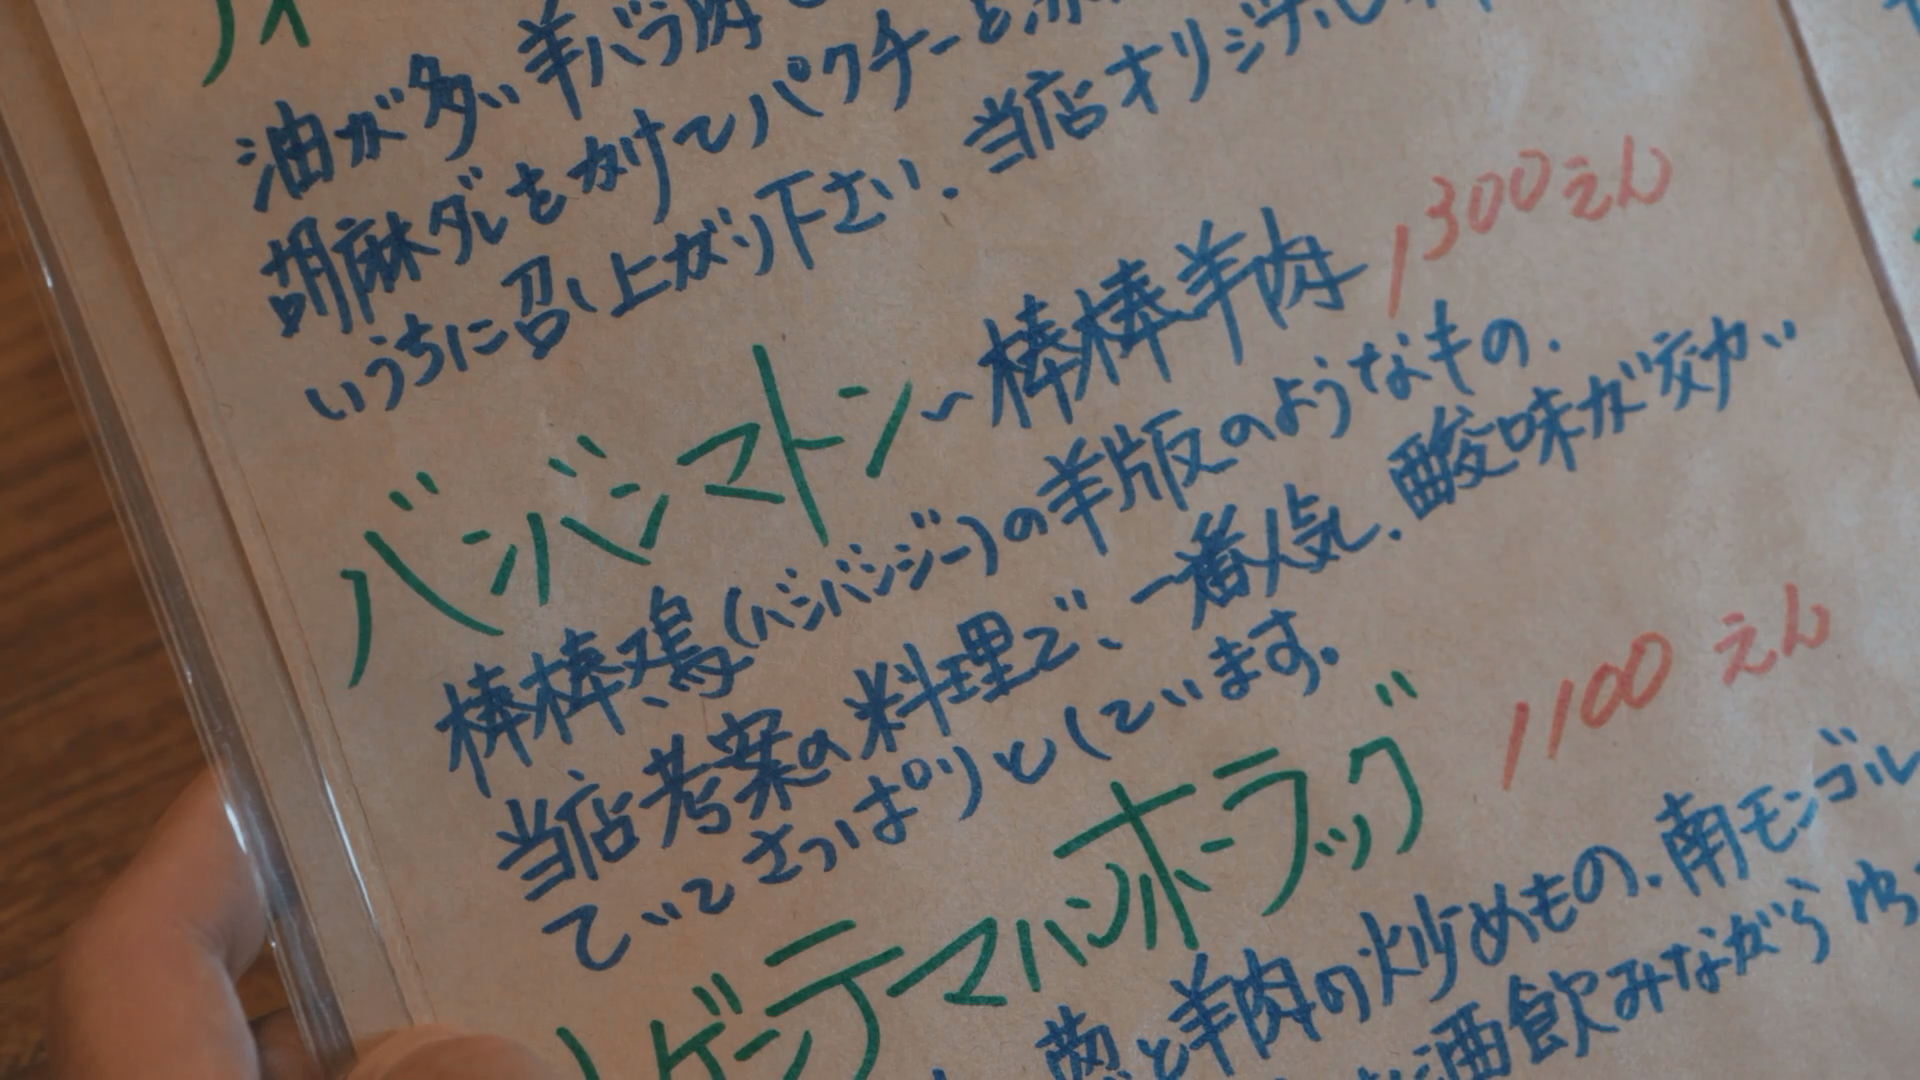 油が多い羊バラ肉
胡麻ダレをかけてパクチーと
いうちに召し上がり下さい. 当店オリジナル
バンバンマトン~棒棒羊肉 1300えん
棒棒鸡(バンバンジー)の羊版のようなもの.
当店考案の料理で、一番人気. 酸味が効い
ていてさっぱりとしています.
ゲンテマハンホーラッグ 1100えん
と羊肉の炒めもの. 南モンゴル
酒飲みながら